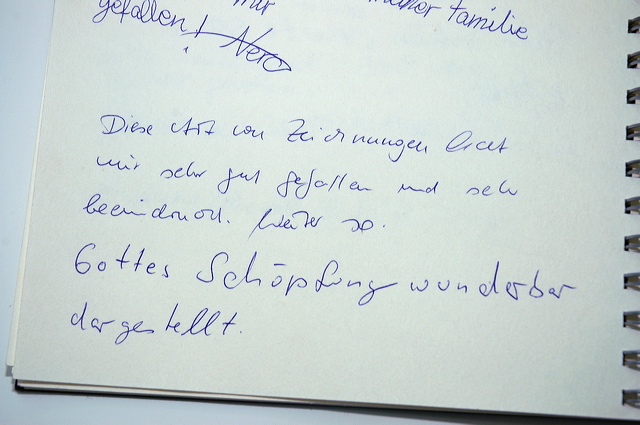 mir meiner Familie
gefallen! Nero
Diese Art von Zeichnungen hat
mir sehr gut gefallen und sehr
beeindruckt. Weiter so.
Gottes Schöpfung wunderbar
dargestellt.